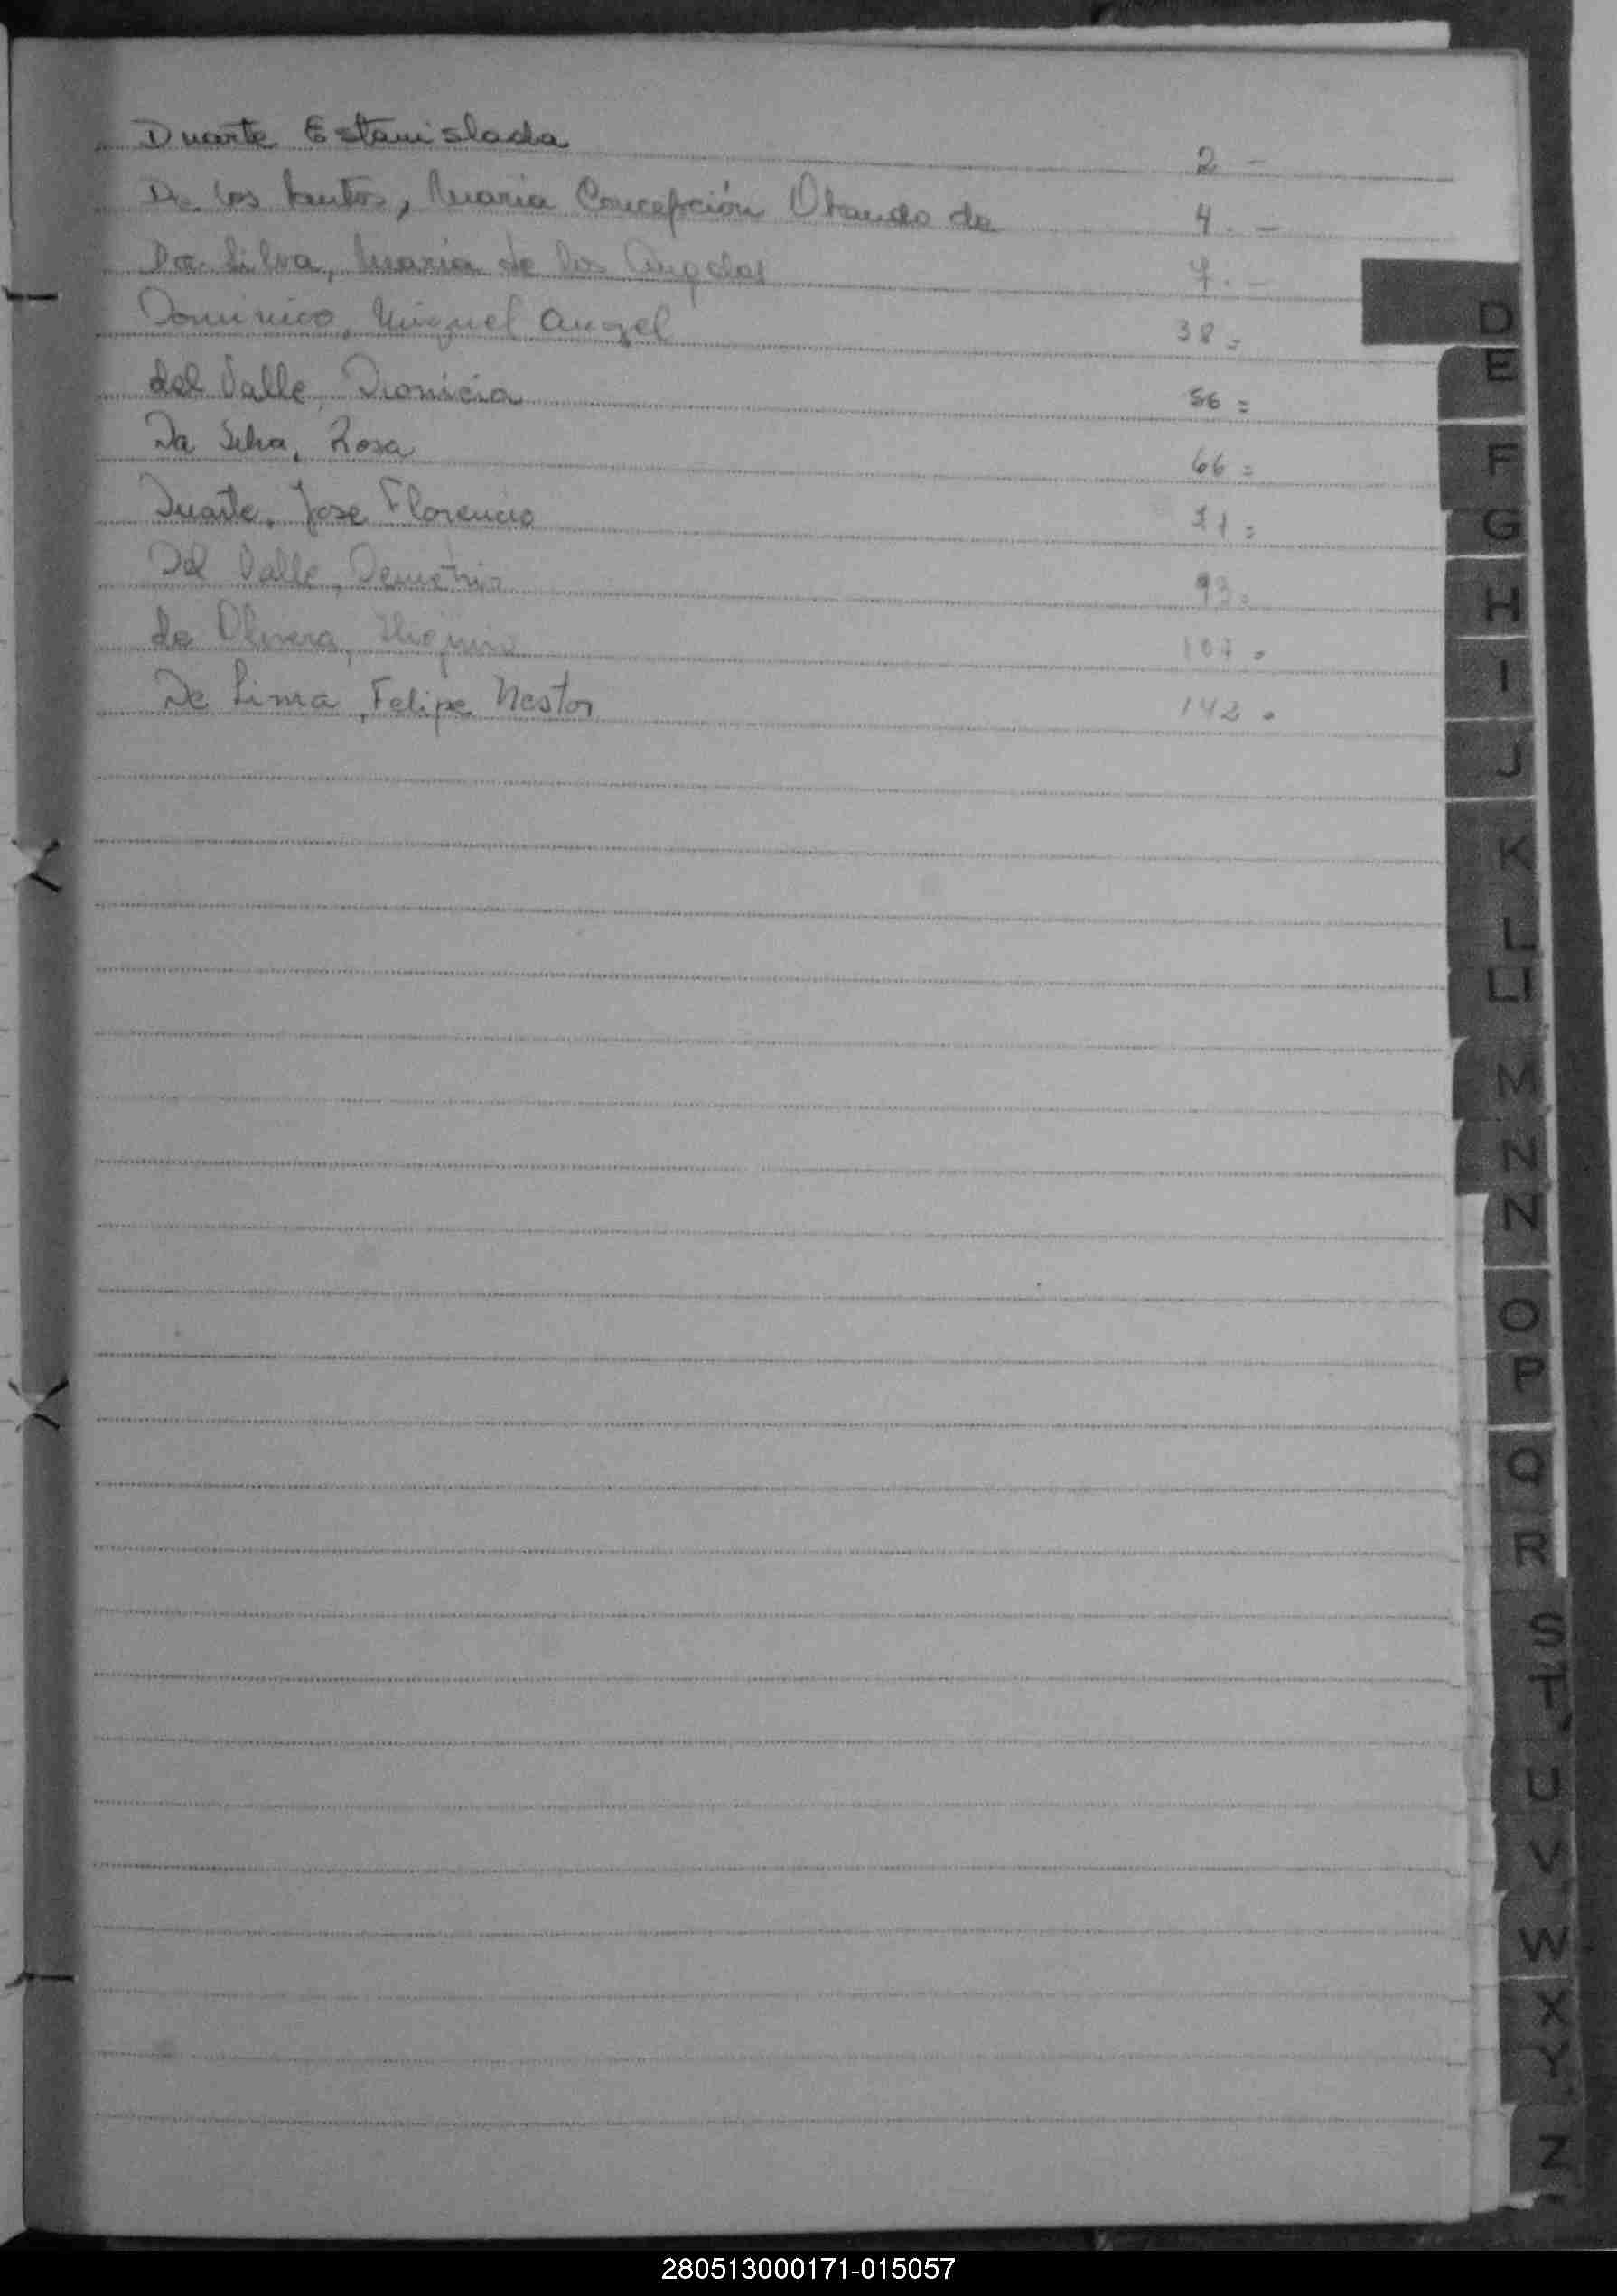 Duarte Estanislada 2 -
De los Santos, Maria Concepción Obando de 4. -
Da Silva, Maria de los Angeles 7. -
Dominico, Miguel Angel 38 =
del Valle, Dionicia 56 =
Da Silva, Rosa 66 =
Duarte, Jose Florencio 71 =
Del Valle, Demetrio 93 =
de Olivera, 107 =
De Lima, Felipe Nestor 142 =
D
E
F
G
H
I
J
K
L
LL
M
N
Ñ
O
P
Q
R
S
T
U
V
W
X
Y
Z
280513000171-015057